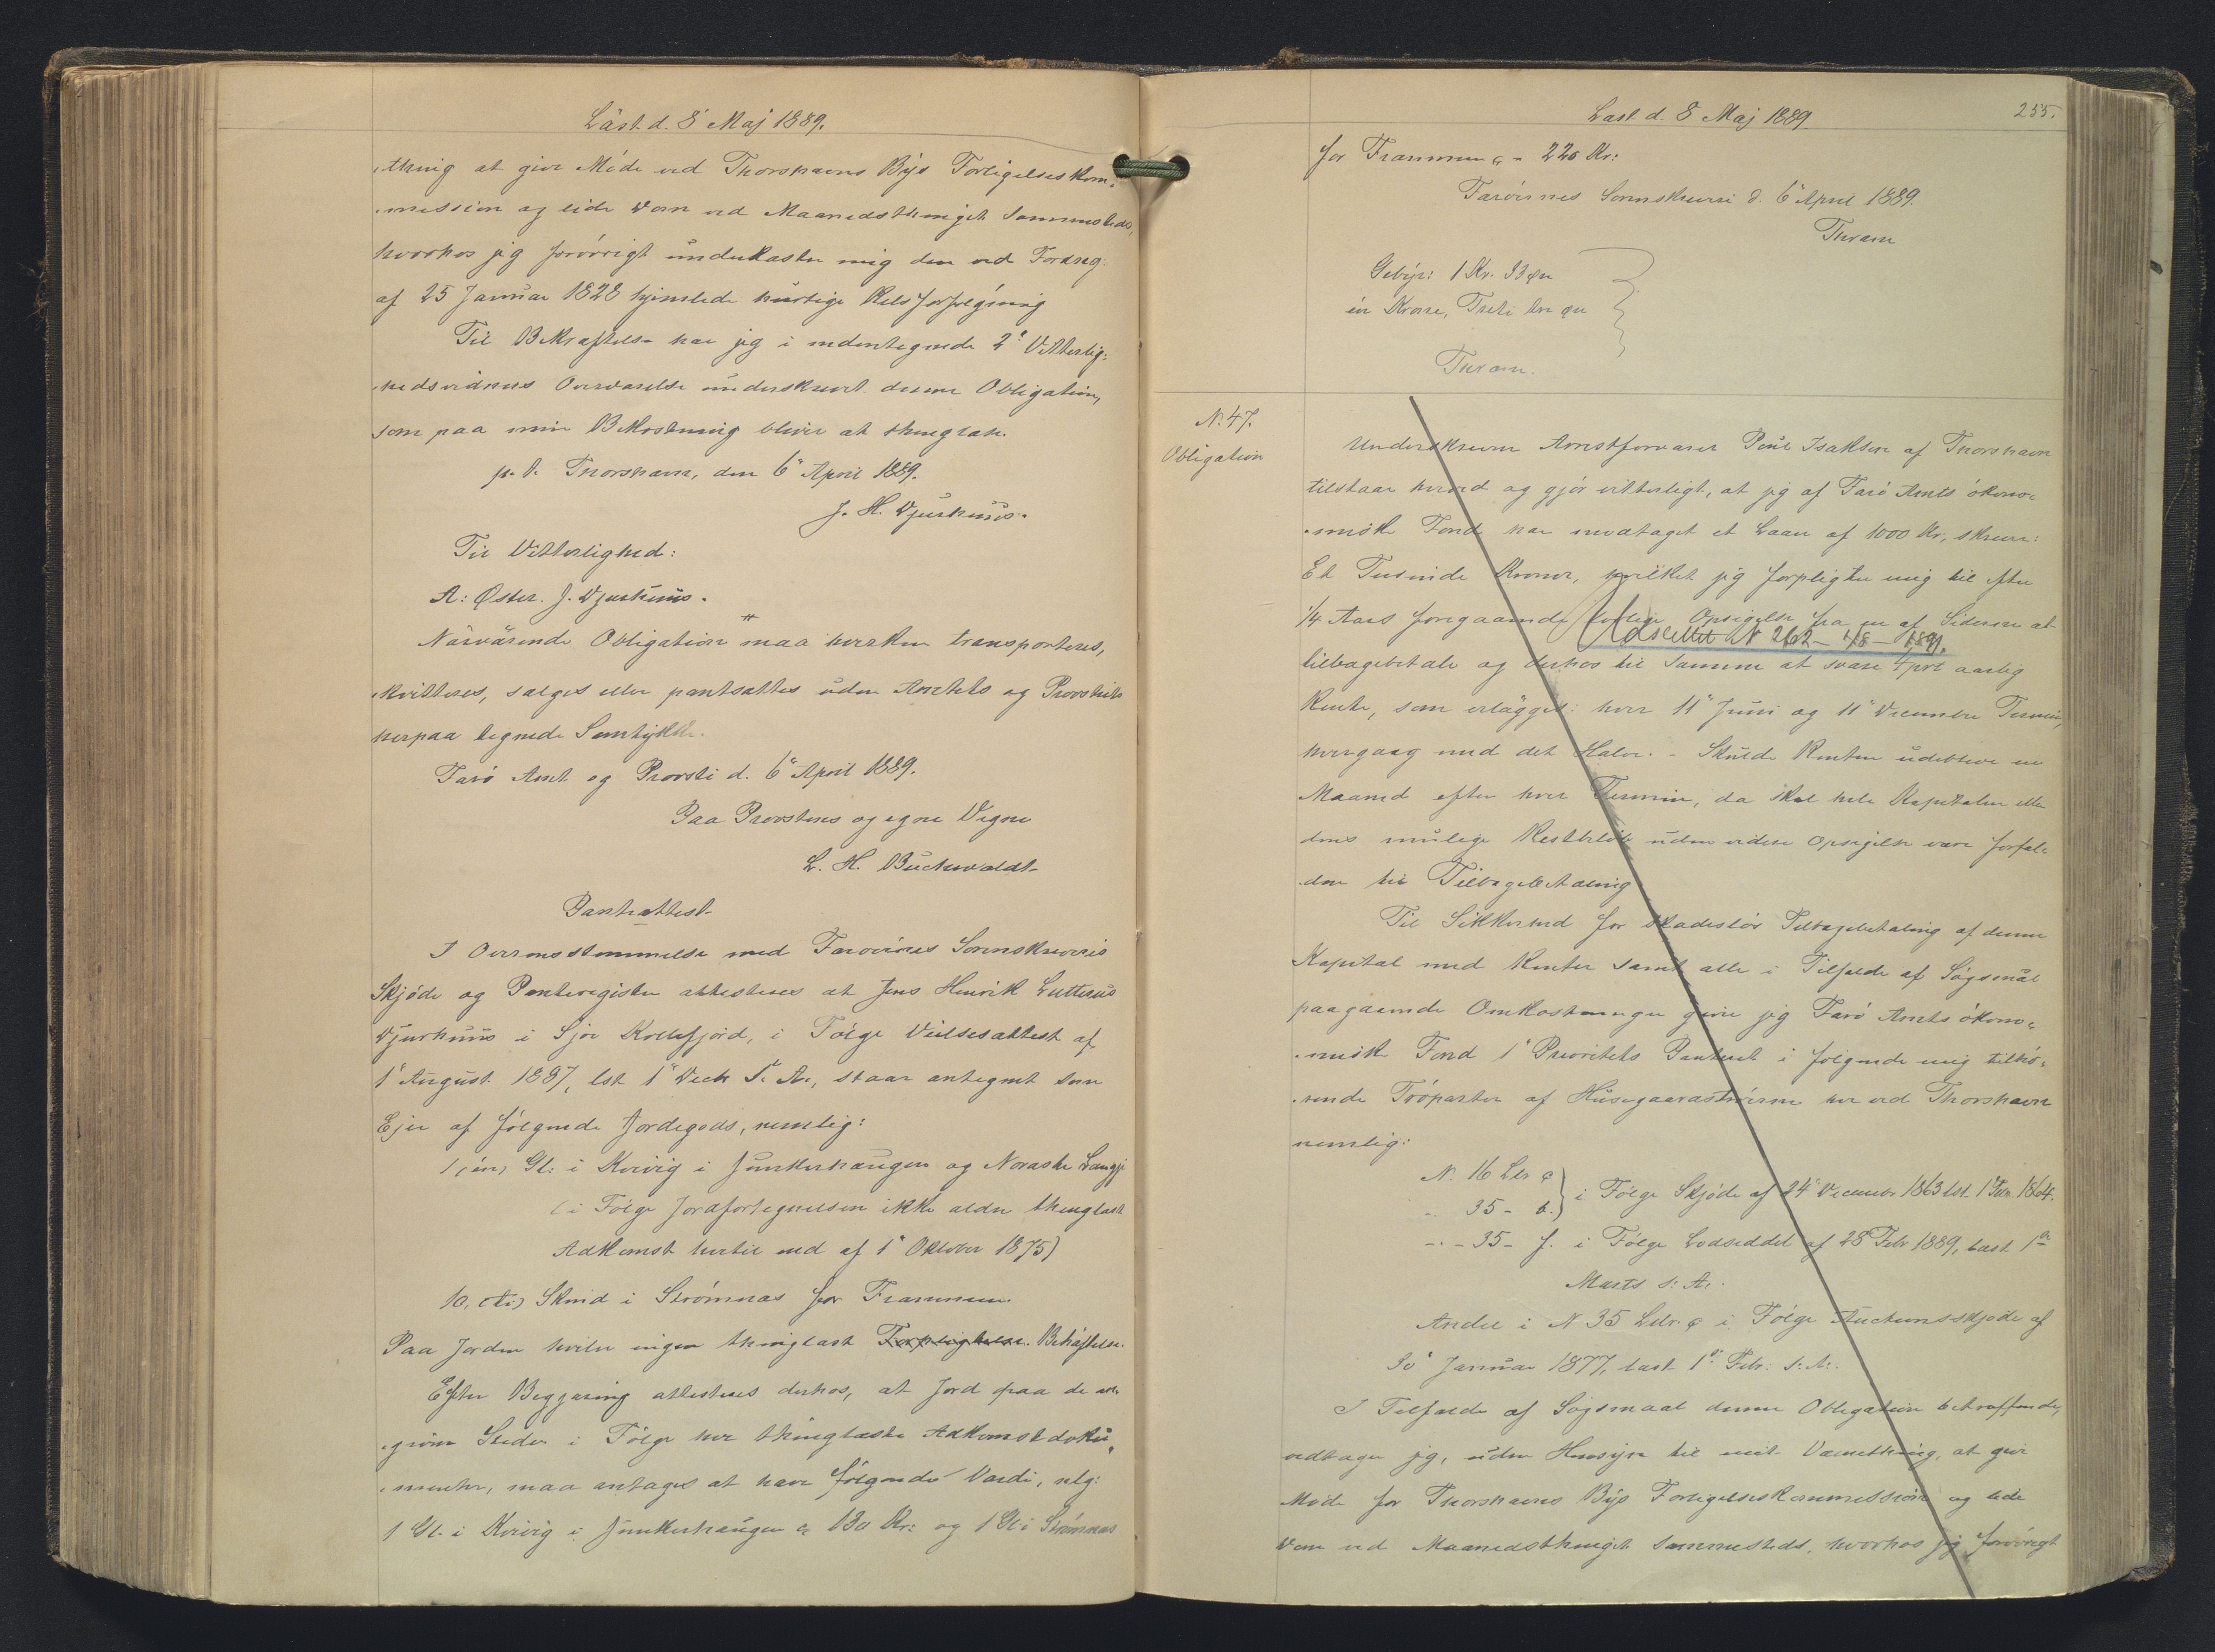 Läst d. 8 Maj 1889.
:thing at give Möde ved Thorshavns Bÿs Forligelseskom:
:mission og lide Dom ved Maanedsthinget sammesteds,
hvorhos jeg forövrigt underkaster mig den ved Fordng:
af 25 Januar 1828 hjemlede hurtige Retsforfölgning
Til Bekræftelse har jeg i undertegnede 2de Vitterlig:
:hedsvidners Overværelse underskrevet denne Obligation,
som paa min Bekostning bliver at thinglæse.
p. t. Thorshavn, den 6te April 1889.
J. H. Djurhuus.
Til Vitterlighed:
A: Öster. J. Djurhuus.
Närvärende Obligation maa hverken transporteres,
kvitteres, sælges eller pantsættes uden Amtets og Provstiets
herpaa tegnede Samtÿkke.
Färö Amt og Provsti d. 6te April 1889.
Paa Provstens og egne Vegne
L. H. Buchwaldt
Panteattest
I Overensstemmelse med Færöernes Sorenskriveries
Skjöde og Panteregister attesteres at Jens Henrik Lutterus
Djurhuus i Sjov Kollefjord, i Fölge Vielsesattest af
1te August 1887, lst. 1te Decbr s. A., staar antegnet som
Ejer af fölgende Jordegods, nemlig:
1, (én) Gl: i Kvivig i Junkerhaugen og Noraste Langgj
(i Fölge Jordfortegnelsen ikke ældre thinglæst
Adkomst hertil end af 1te Oktober 1875)
10, (ti) Skind i Strömnæs for Frammen.
Paa Jorden hviler ingen thinglæst Forpligtelse. Behæftelse.
Efter Begjæring attesteres derhos, at Jord paa de an:
:givne Steder i Fölge her thinglæste Adkomstdoku:
:menter, maa antages at have fölgende Værdi, nlg:
1 Gl. i Kvivig i Junkerhaugen a 130 Kr: og 1 Gl i Strömnæs
Læst d. 8 Maj 1889
255.
for Frammen a - 220 Kr:
Færöernes Sorenskriveri d. 6te April 1889.
Gebÿr: 1 Kr. 33 Öre
én Krone, Treti tre Öre
N. 47.
Obligation
Underskrevne Arrestforvarer Poul Isaksen af Thorshavn
tilstaar herved og gjör vitterligt, at jeg af Færö Amts ökono:
:miske Fond har modtaget et Laan af 1000 Kr, skriver:
Et Tusinde Kroner, hvilket jeg forpligter mig til efter
1/4 Aars foregaaende lovlige Opsigelse fra en af Siderne at
Udslettet N 262 - 1/8 - 1891.
tilbagebetale og derhos til samme at svare 4 pCt aarlig
Rente, som erlägges: hver 11te Juni og 11te December Termin,
hvergang med det Halve. - Skulde Renten udeblive en
Maaned efter hver Termin, da skal hele Kapitalen eller
dens mulige Restbelöb uden videre Opsigelse være forfal:
:den til Tilbagebetaling
Til Sikkerhed for skadeslös Tilbagebetaling af denne
Kapital med Renter samt alle i Tilfælde af Sögsmål
paagaaende Omkostninger giver jeg Färö Amts ökono:
:miske Fond 1te Prioritets Panteret i fölgende mig tilhö:
:rende Tröparter af Húsagaarastróerne her ved Thorshavn
nemlig:
N. 16 Ltr a
" 35 - b.) i Fölge Skjöde af 24de Decembr 1863 lst. 1te Febr. 1864.
" - 35 - f. i Fölge Lodseddel af 28 Febr 1889, læst 1ste
Marts s: A:.
Andel i N 35 Ltr. a i Fölge Auctionsskjöde af
30te Januar 1877, læst 1ste Febr: s: A:.
I Tilfælde af Sögsmaal denne Obligation betræffende,
vedtager jeg, uden Hensÿn til mit Værnething, at give
Möde for Thorshavns Bÿs Forligelseskommission og lide
Dom ved Maanedsthinget sammesteds, hvorhos jeg forövrigt